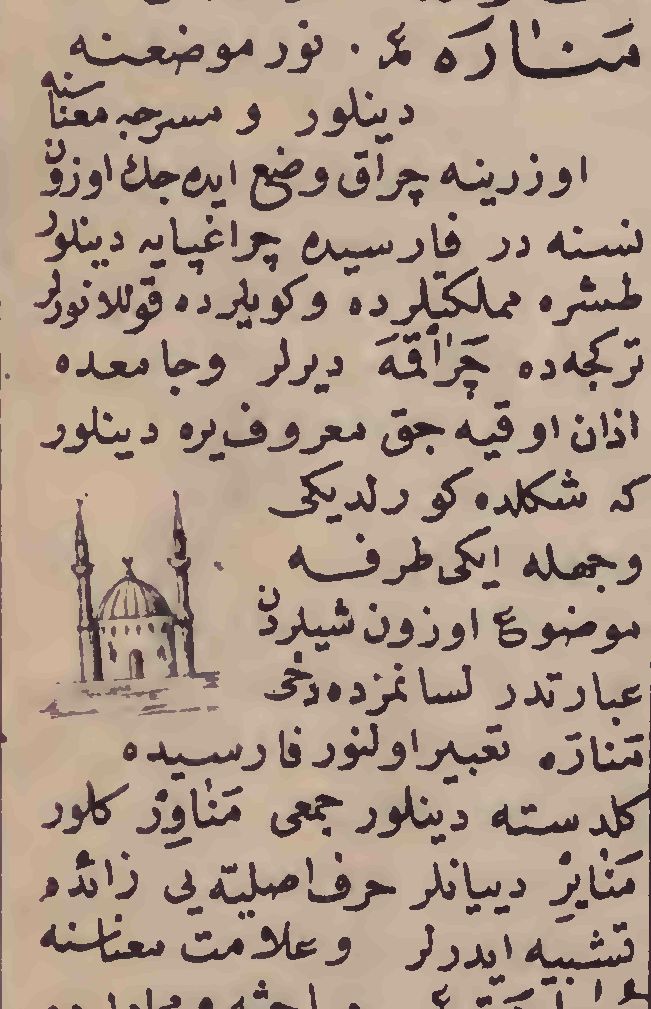 مَنَارَه ع. نور موضعنه
دينلور و مسرجه معناسنه
اوزرينه چراق وضع ايده‌جك اوزون
نسنه در فارسيده چراغپايه دينلور
طشره مملكتلرده و كويلرده قوللانورلر
تركجه‌ده چَرَاقْمَه ديرلر و جامعده
اذان اوقيه‌جق معروف يره دينلور
كه شكلده كورلديكى
وجهله ايكى طرفه
موضوع اوزون شيلردن
عبارتدر لسانمزده دخى
مَنَارَه تعبير اولنور فارسيده
كلدسته دينلور جمعى مَنَاوِرْ كلور
مَنَايِرْ دييانلر حرف اصليه‌يى زائده
تشبيه ايدرلر و علامت معناسنه